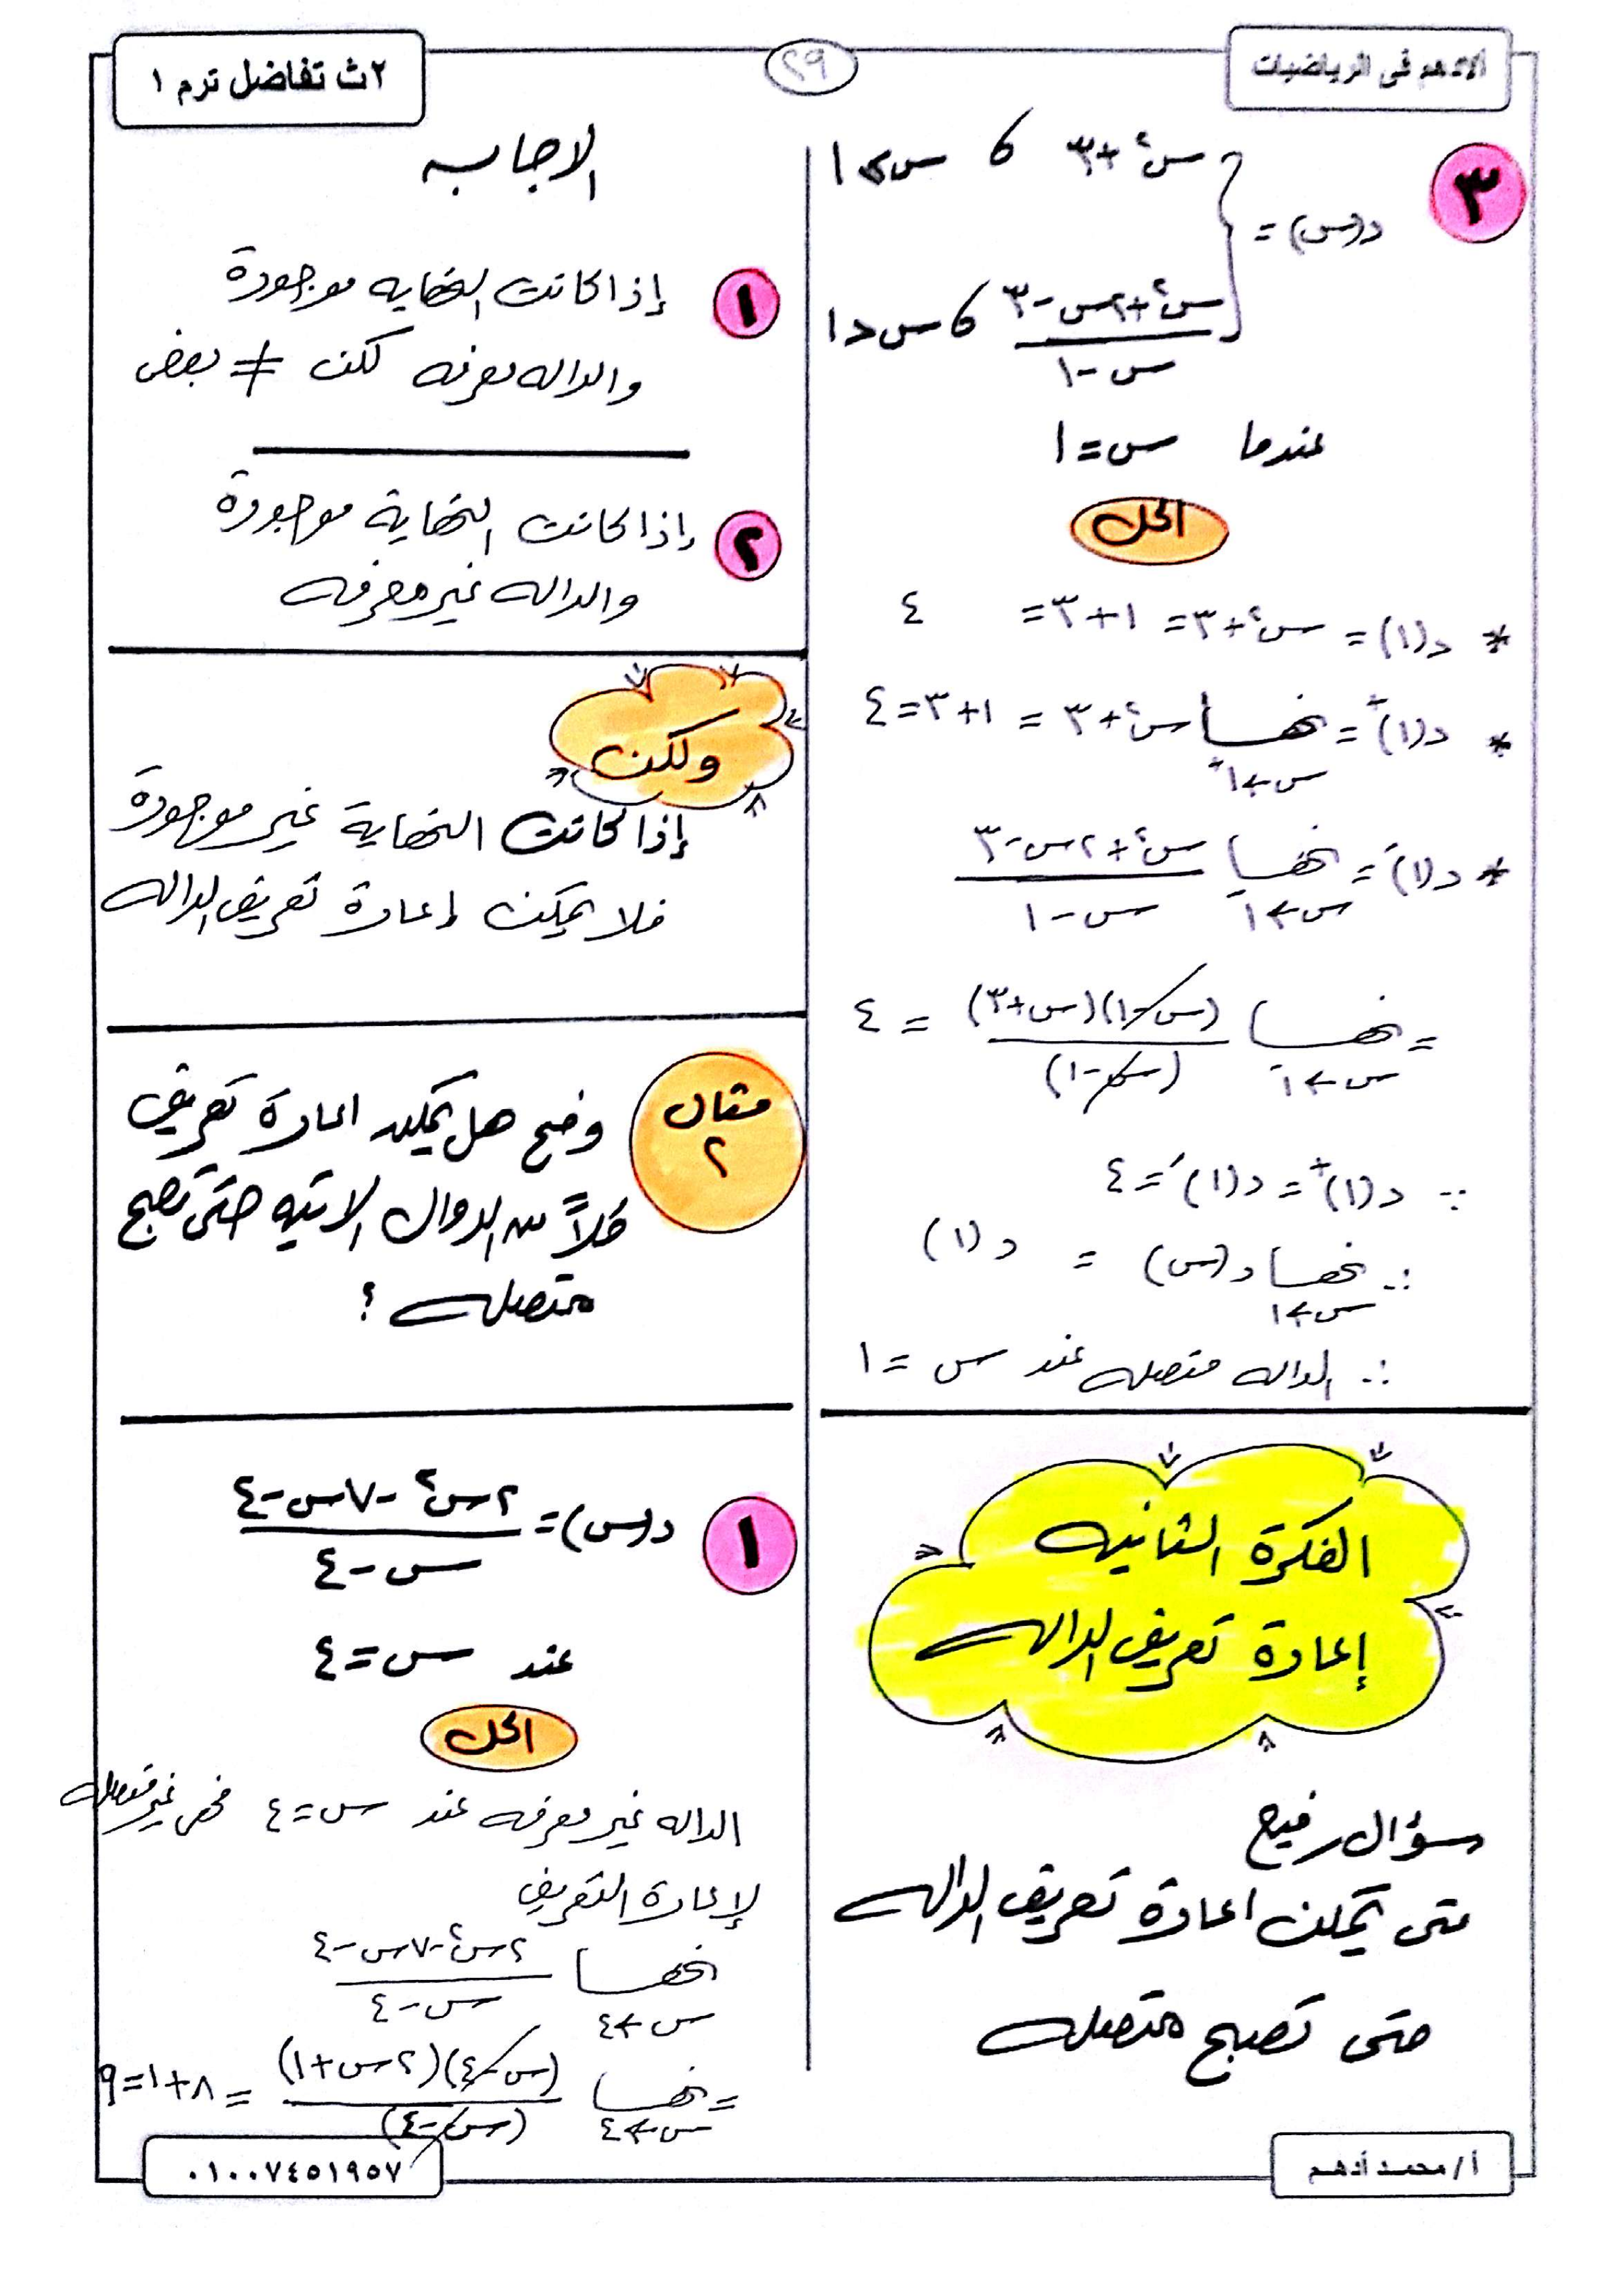 الادهم فى الرياضيات
٢٩
٢ث تفاضل ترم ١
٣
د(س) = { س٢ + ٣ ، س ≥ ١
س٢ + ٢س - ٣ / س - ١ ، س < ١
عندما س = ١
الحل
* د(١) = س٢ + ٣ = ١ + ٣ = ٤
* د(١)+ = نهـــا س٢ + ٣ = ١ + ٣ = ٤
س ← ١+
* د(١)- = نهـــا س٢ + ٢س - ٣ / س - ١
س ← ١-
= نهـــا (س - ١)(س + ٣) / (س - ١) = ٤
س ← ١-
∵ د(١)+ = د(١)- = ٤
∴ نهـــا د(س) = د(١)
س ← ١
∴ الداله متصله عند س = ١
الفكرة الثانيه
إعادة تعريف الداله
سؤال رفيع
متى يمكن اعادة تعريف الداله
حتى تصبح متصله
الاجابه
١ إذا كانت النهايه موجودة
والداله معرفه لكن ≠ بعض
٢ إذا كانت النهاية موجودة
والداله غير معرفه
ولكن
إذا كانت النهاية غير موجودة
فلا يمكن إعادة تعريف الداله
مثال ٢
وضح هل يمكن اعادة تعريف
كلاً من الدوال الاتيه حتى تصبح
متصله ؟
١
د(س) = ٢س٢ - ٧س - ٤ / س - ٤
عند س = ٤
الحل
الداله غير معرفه عند س = ٤ فهى غير متصله
لإعادة التعريف
نهـــا ٢س٢ - ٧س - ٤ / س - ٤
س ← ٤
= نهـــا (س - ٤)(٢س + ١) / (س - ٤) = ٨ + ١ = ٩
س ← ٤
أ/ محمد أدهم
٠١٠٠٧٤٥١٩٥٧